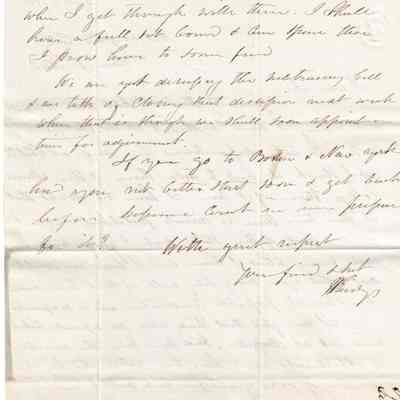 when I get through with them. I shall
have a full set bound & can spare them
I from home to some friend
We are yet discussing the subtreasury bill
& we talk of closing that discussion next week
when that is through we shall soon appoint a
time for adjournment.
If you go to Boston & New york
had you not better start soon & get back
before Supreme Court so as prepare
for it?
With great respect
Your friend &